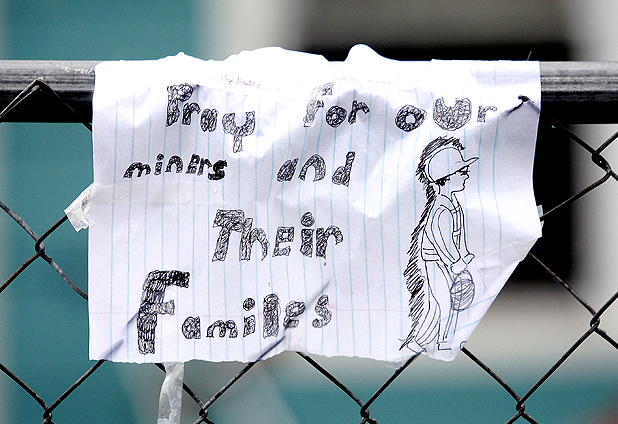 Pray For our
miners and
Their
Families